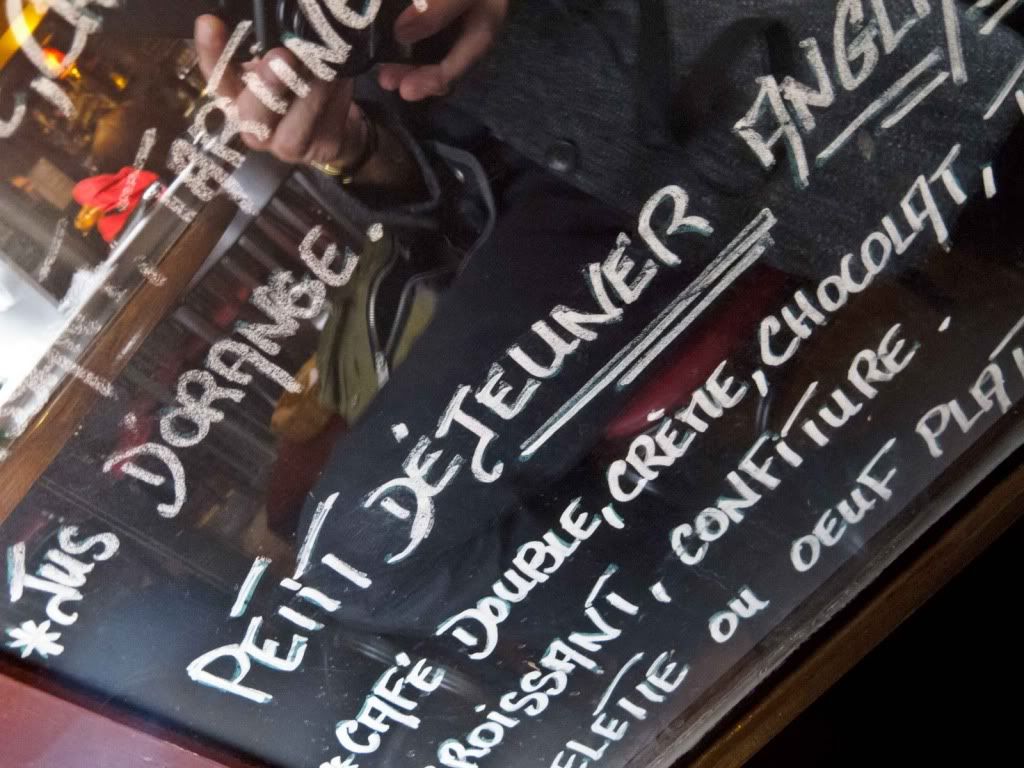 TARTINE
*JUS DORANGE.
PETIT DÉJEUNER ANGLA
*CAFÉ DOUBLE, CRÈME, CHOCOLAT,
ROISSANT, CONFITURE.
ELETTE OU OEUF PLAT